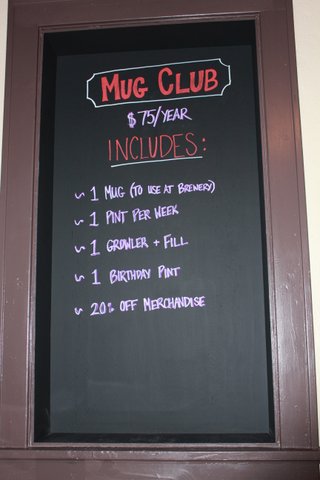 MUG CLUB
$75/YEAR
INCLUDES:
~ 1 MUG (TO USE AT BREWERY)
~ 1 PINT PER WEEK
~ 1 GROWLER + FILL
~ 1 BIRTHDAY PINT
~ 20% OFF MERCHANDISE